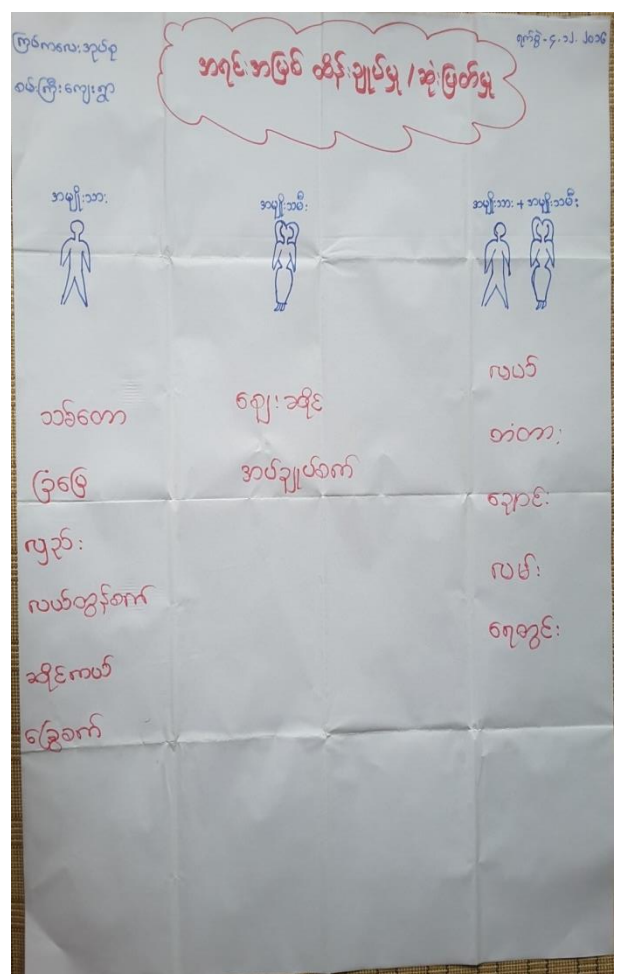 ကြမ်ကလေးအုပ်စု
စမ်းကြီးကျေးရွာ
အရင်းအမြစ် ထိန်းချုပ်မှု / ဆုံးဖြတ်မှု
ရက်စွဲ - ၄.၁၂.၂၀၁၆
အမျိုးသား
အမျိုးသမီး
အမျိုးသား + အမျိုးသမီး
သစ်တော
ခြံမြေ
လှည်း
လယ်ထွန်စက်
ဆိုင်ကယ်
ခြွေစက်
ဈေးဆိုင်
အပ်ချုပ်စက်
လယ်
တံတား
ချောင်း
လမ်း
ရေတွင်း